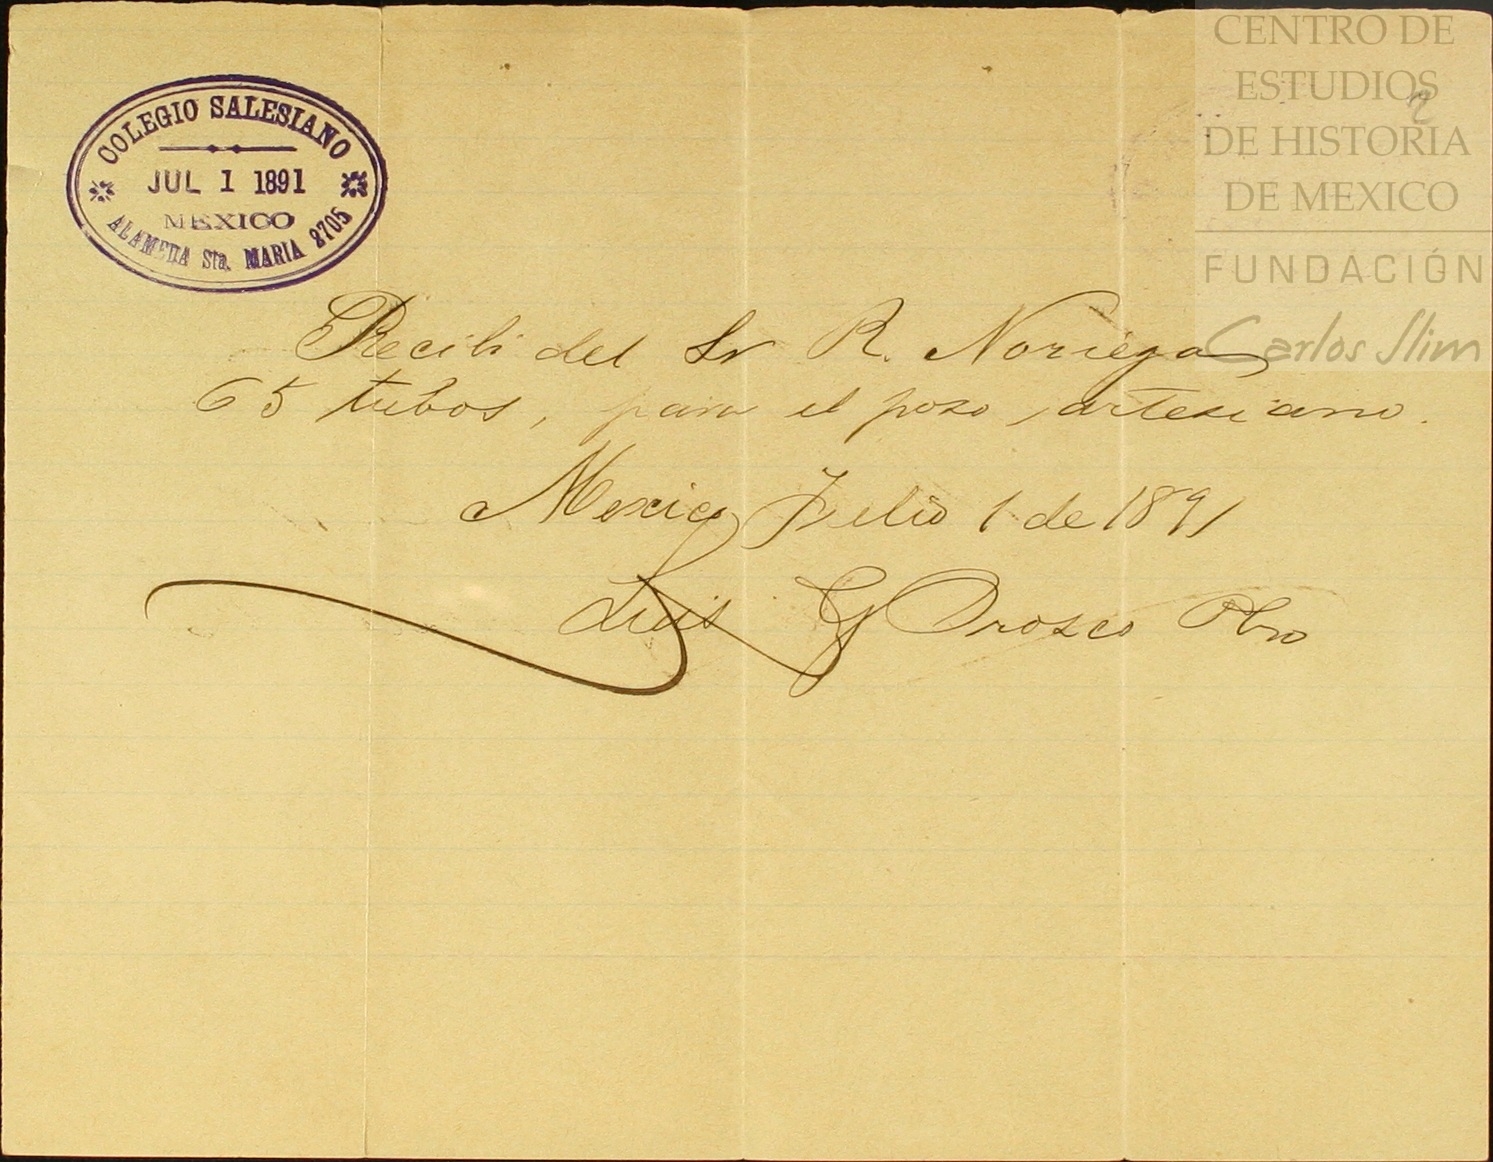 COLEGIO SALESIANO
JUL 1 1891
MEXICO
ALAMEDA Sta. MARIA 2705
CENTRO DE
ESTUDIOS
DE HISTORIA
DE MEXICO
FUNDACIÓN
Carlos Slim
2
Recibi del Sr R. Noriega
65 tubos, para el poso artesiano.
Mexico Julio 1 de 1891
Luis G Orosco Pbro